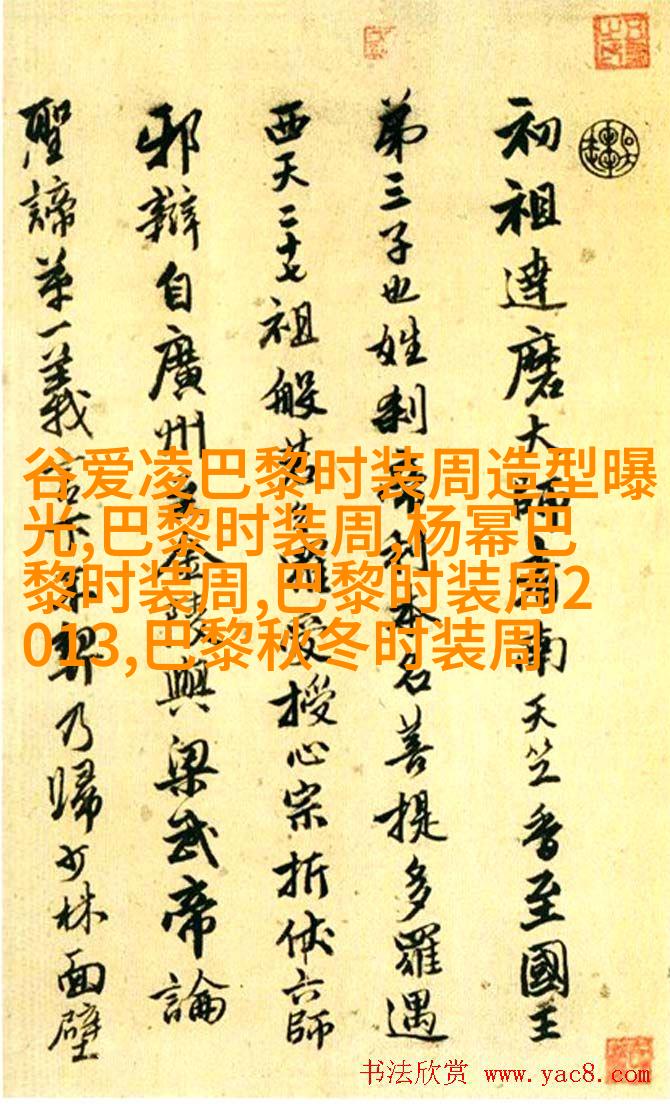 初祖達磨大師者南天竺香至國王
第三子也姓刹帝利本名菩提多羅遇
西天二十七祖般若多羅受授心宗折伏六師
邪辯自廣州至金陵與梁武帝論
聖諦第一義言下不契乃歸少林面壁
谷爱凌巴黎时装周造型曝
光,巴黎时装周,杨幂巴
黎时装周,巴黎时装周2
013,巴黎秋冬时装周
书法欣赏 www.yac8.com